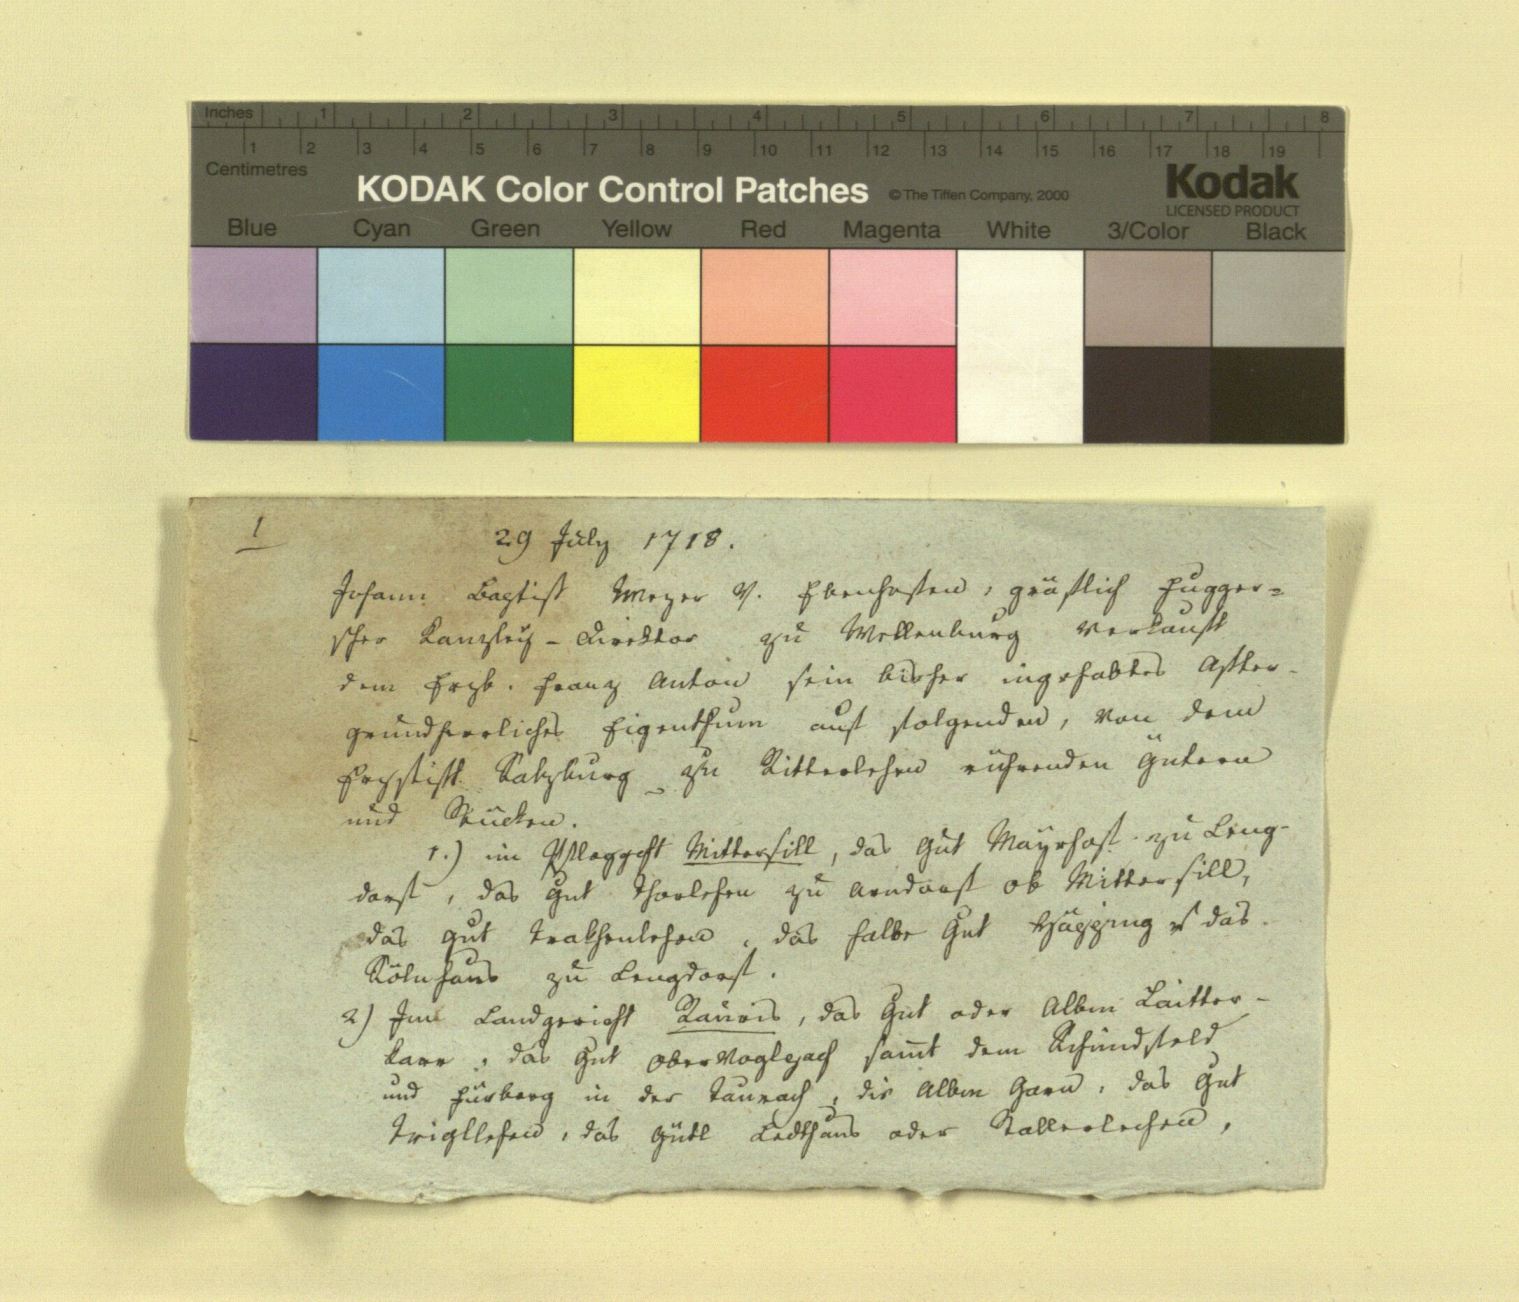 Inches 1 2 3 4 5 6 7 8
1 2 3 4 5 6 7 8 9 10 11 12 13 14 15 16 17 18 19
Centimetres
KODAK Color Control Patches © The Tiffen Company, 2000 Kodak
LICENSED PRODUCT
Blue Cyan Green Yellow Red Magenta White 3/Color Black
1
29 July 1718.
Johann Baptist Mezer v. Ebenhofen, gräflich Fugger=
scher Kanzley-Direktor zu Wellenburg verkauft
dem Erzb. Franz Anton sein bisher ingehabtes After-
grundherrliches Eigenthum auf folgenden, von dem
Erzstift Salzburg zu Ritterlehen rührenden Gütern
und Stücken.
1.) im Pfleggcht Mittersill, das Gut Mayrhof zu Leng-
dorf, das Gut Thorlehen zu Arndorf ob Mittersill,
das Gut Trattenlehen, das halbe Gut Häpping & das
Kölnhaus zu Lengdorf.
2) Im Landgericht Rauris, das Gut oder Alben Laitter-
karr, das Gut Obervoglejach samt dem Schündfeld
und Fürberg in der Taurach, die Alben Garn, das Gut
Trigllehen, das Gütl Ledthaus oder Kallerlechen,